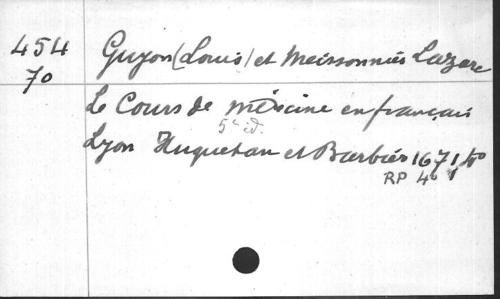 454
70
Guyon (Louis) et Meissonnier Lazare
Le Cours de médecine en français
5e éd.
Lyon Huguetan et Barbier 1671 4o
RP 4o